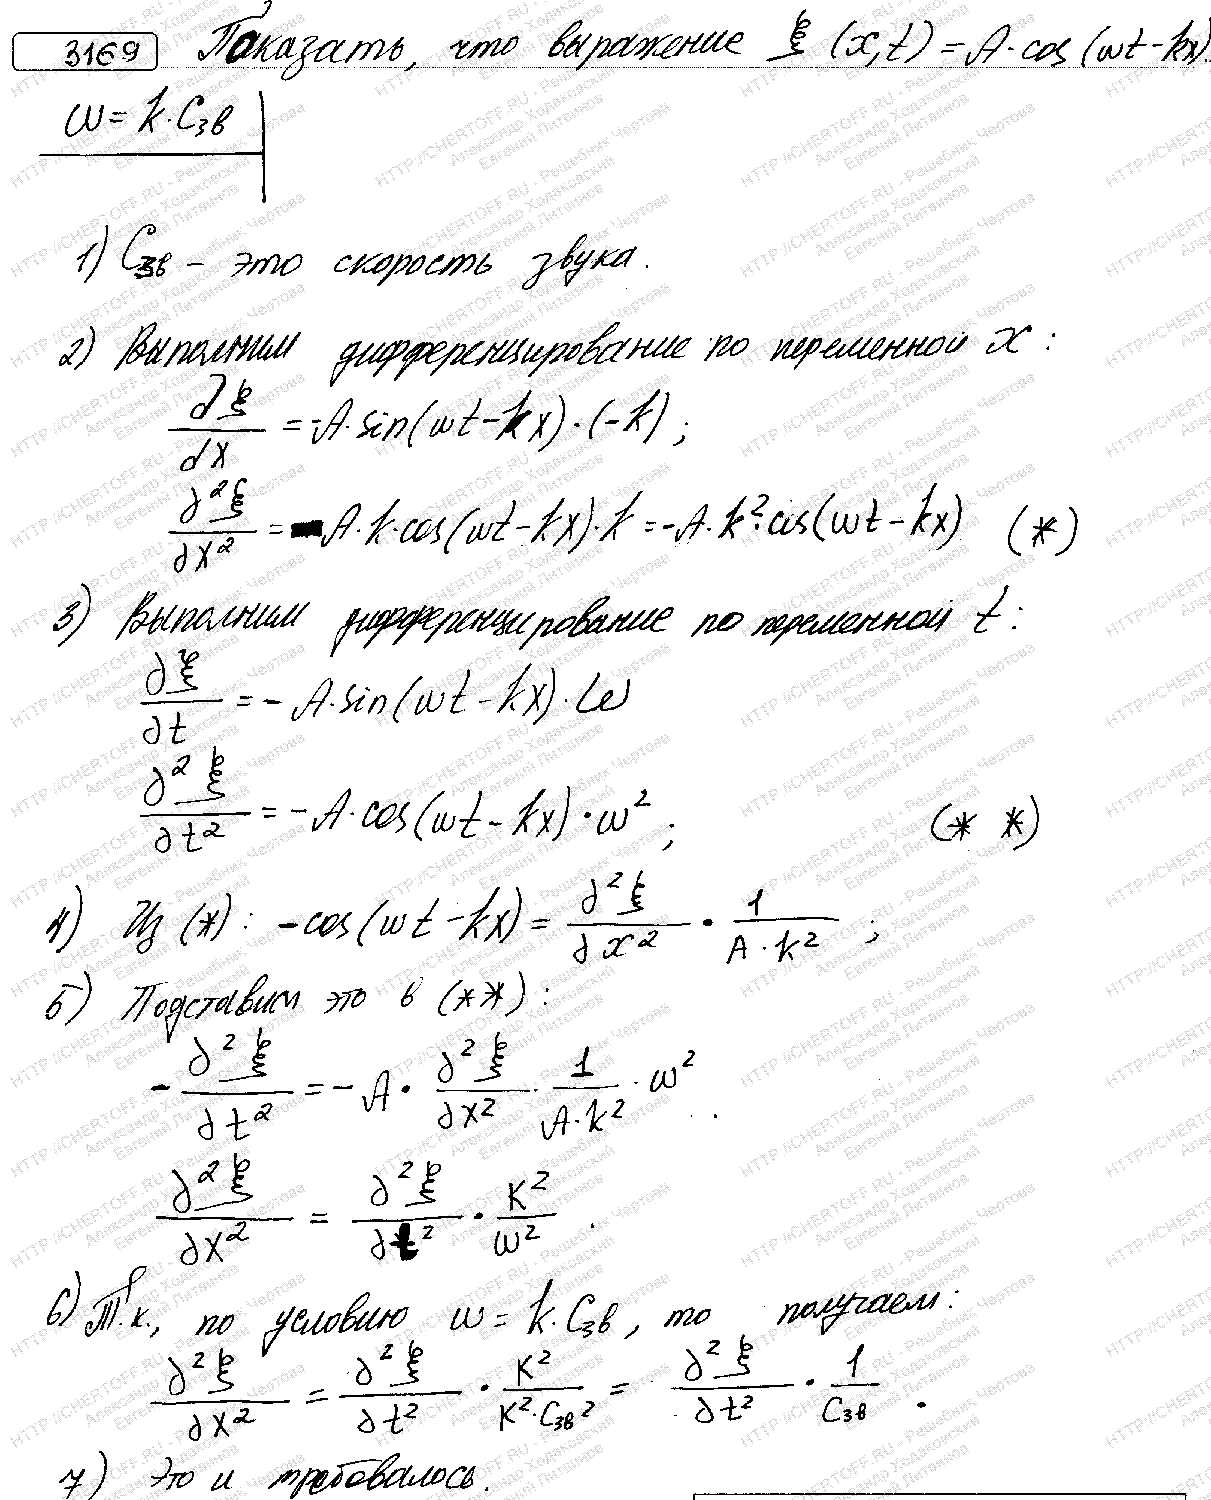 3169 Показать, что выражение ξ(x,t) = A·cos(ωt − kx).
ω = k·Cзв
1) Cзв – это скорость звука.
2) Выполним дифференцирование по переменной x:
∂ξ/dx = -A·sin(ωt − kx)·(−k);
∂²ξ/∂x² = −A·k·cos(ωt − kx)·k = −A·k²·cos(ωt − kx) (*)
3) Выполним дифференцирование по переменной t:
∂ξ/∂t = − A·sin(ωt − kx)·ω
∂²ξ/∂t² = − A·cos(ωt − kx)·ω²; (* *)
4) Из (*): −cos(ωt − kx) = ∂²ξ/∂x² · 1/(A·k²);
5) Подставим это в (**):
−∂²ξ/∂t² = − A· ∂²ξ/∂x² · 1/(A·k²) · ω².
∂²ξ/∂x² = ∂²ξ/∂t² · K²/ω².
6) Т.к., по условию ω = k·Cзв, то получаем:
∂²ξ/∂x² = ∂²ξ/∂t² · K²/(K²·Cзв²) = ∂²ξ/∂t² · 1/Cзв.
7) Это и требовалось.
HTTP://CHERTOFF.RU - Решебник Чертова
Александр Ходаковский
Евгений Литвинов